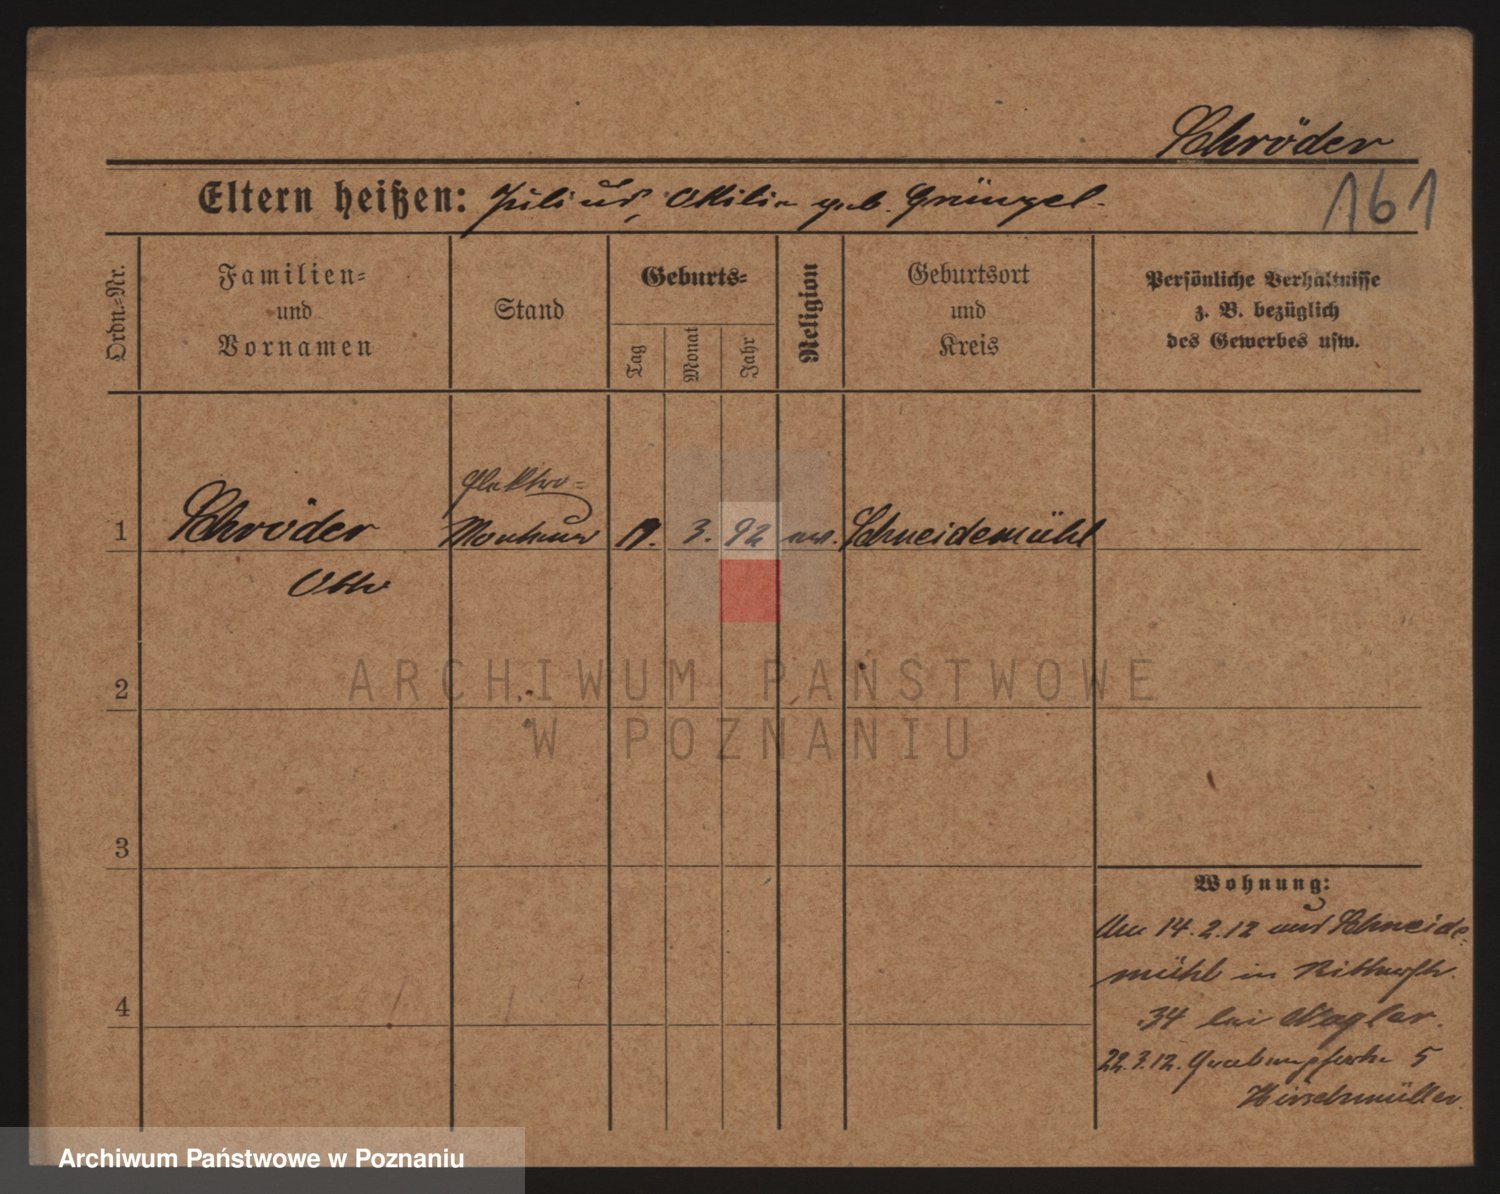 Schröder
161
Eltern heißen: Julius, Ottilie geb. Grüngel.
Ordn.=Nr.
Familien=
und
Vornamen
Stand
Geburts=
Tag
Monat
Jahr
Religion
Geburtsort
und
Kreis
Persönliche Verhältnisse
z. B. bezüglich
des Gewerbes usw.
Elektro=
1 Schröder Monteur 19. 3. 92 ev. Schneidemühl
Otto
2
3
4
Wohnung:
Am 14.2.12 aus Schneide=
mühl in Ritterstr.
34 bei Nagler.
22.3.12. 5
Hirschmüller.
ARCHIWUM PAŃSTWOWE
W POZNANIU
Archiwum Państwowe w Poznaniu